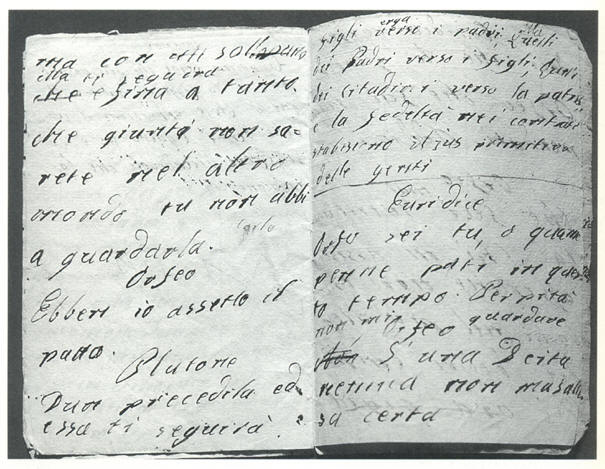 ma con
ella ti seguirà
che e sina a tanto.
che giunta non sa=
rete nel altro
mondo tu non abbi
a guardarla.
Orfeo
Ebben io assetto il
patto.
Plutone
Dun precedila ed
essa ti seguirà.
erga
figli verso i padri, Quelli
dei Padri verso i figli,
dei Citadini verso la patria
e la fedeltà nei contrati
stabiliscino il jus primitivo
delle genti
Euridice
Orfeo sei tu, o quante
penne pati in ques
to tempo. Per pità
non mi guardare
Orfeo
S'una Deita
nemica non m'asali
sa certa